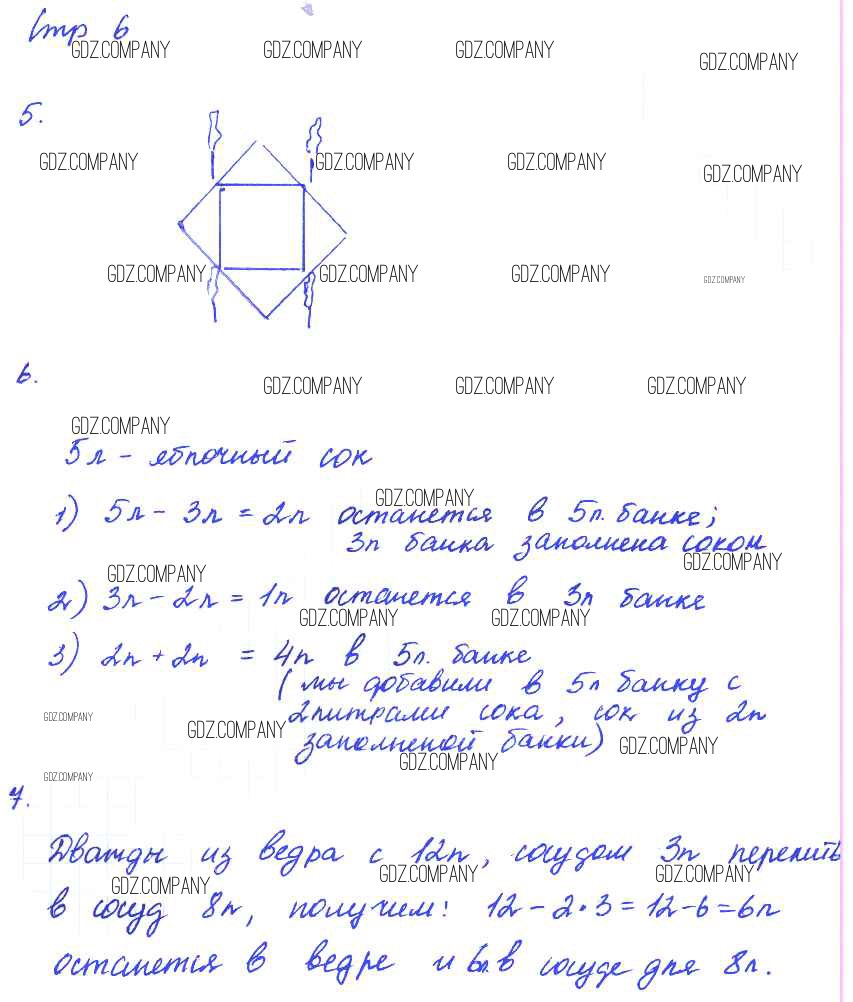 Стр 6
GDZ.COMPANY GDZ.COMPANY GDZ.COMPANY GDZ.COMPANY
5.
GDZ.COMPANY GDZ.COMPANY GDZ.COMPANY GDZ.COMPANY
GDZ.COMPANY GDZ.COMPANY GDZ.COMPANY GDZ.COMPANY
6.
GDZ.COMPANY GDZ.COMPANY GDZ.COMPANY
GDZ.COMPANY
5л - яблочный сок
GDZ.COMPANY
1) 5л - 3л = 2л останется в 5л. банке;
3л банка заполнена соком
GDZ.COMPANY
GDZ.COMPANY
2) 3л - 2л = 1л останется в 3л банке
GDZ.COMPANY GDZ.COMPANY
3) 2л + 2л = 4л в 5л. банке
(мы добавили в 5л банку с
2литрами сока, сок из 2л
GDZ.COMPANY GDZ.COMPANY
заполненой банки) GDZ.COMPANY
GDZ.COMPANY
GDZ.COMPANY
7.
Дважды из ведра с 12л, сосудом 3л перелить
GDZ.COMPANY GDZ.COMPANY GDZ.COMPANY
в сосуд 8л, получим: 12 - 2·3 = 12 - 6 = 6л
останется в ведре и 6л. в сосуде для 8л.